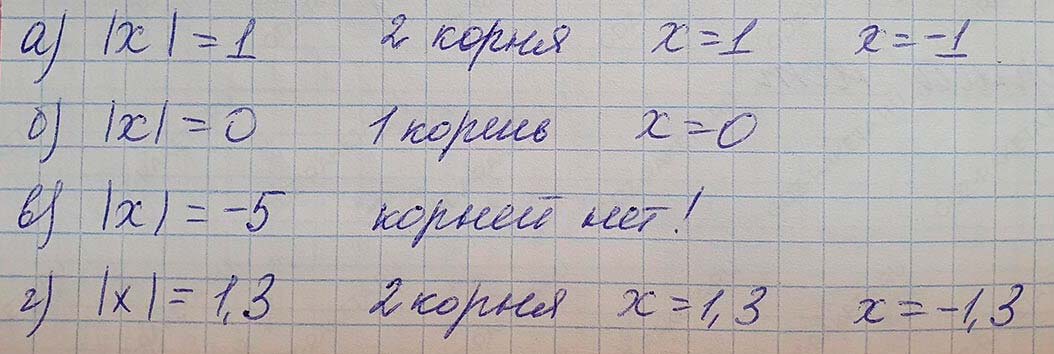 а) |x| = 1 2 корня x = 1 x = -1
б) |x| = 0 1 корень x = 0
в) |x| = -5 корней нет!
г) |x| = 1,3 2 корня x = 1,3 x = -1,3